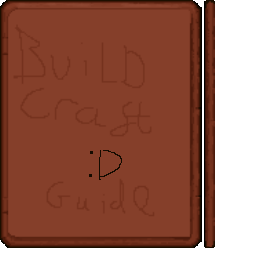 BuiLD
Craft
:D
Guide